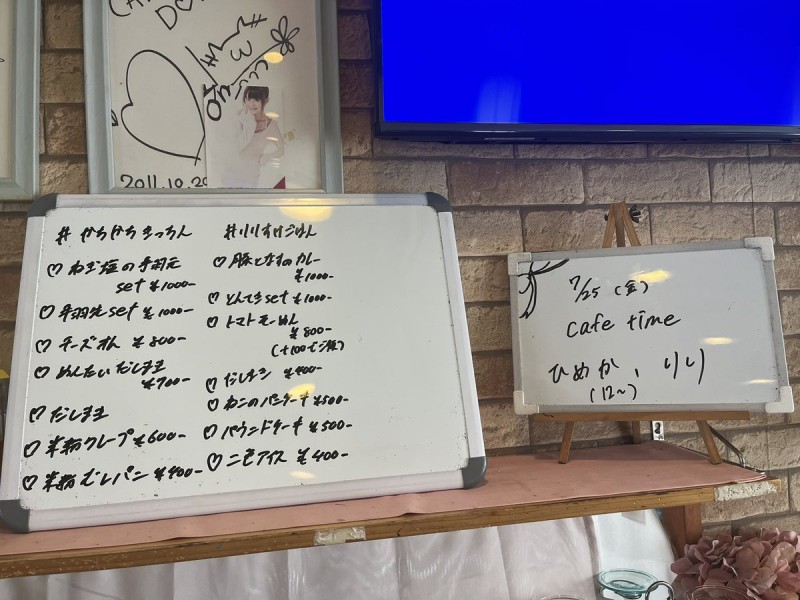 2011.10.20
# かちかちきっちん
♡ ねぎ塩の手羽元
set ¥1000-
♡ 手羽先set ¥1000-
♡ チーズオム ¥800-
♡ めんたいだしまき
¥700-
♡ だしまき
♡ 米粉クレープ ¥600-
♡ 米粉むしパン ¥400-
#りりすけごはん
♡ 豚となすのカレー
¥1000-
♡ とんてきset ¥1000-
♡ トマトそーめん
¥800-
♡ だしチキン ¥400-
♡ ねこのパンケーキ ¥500-
♡ パウンドケーキ ¥500-
♡ 二色アイス ¥400-
7/25 (金)
cafe time
ひめか、りり
(12~)